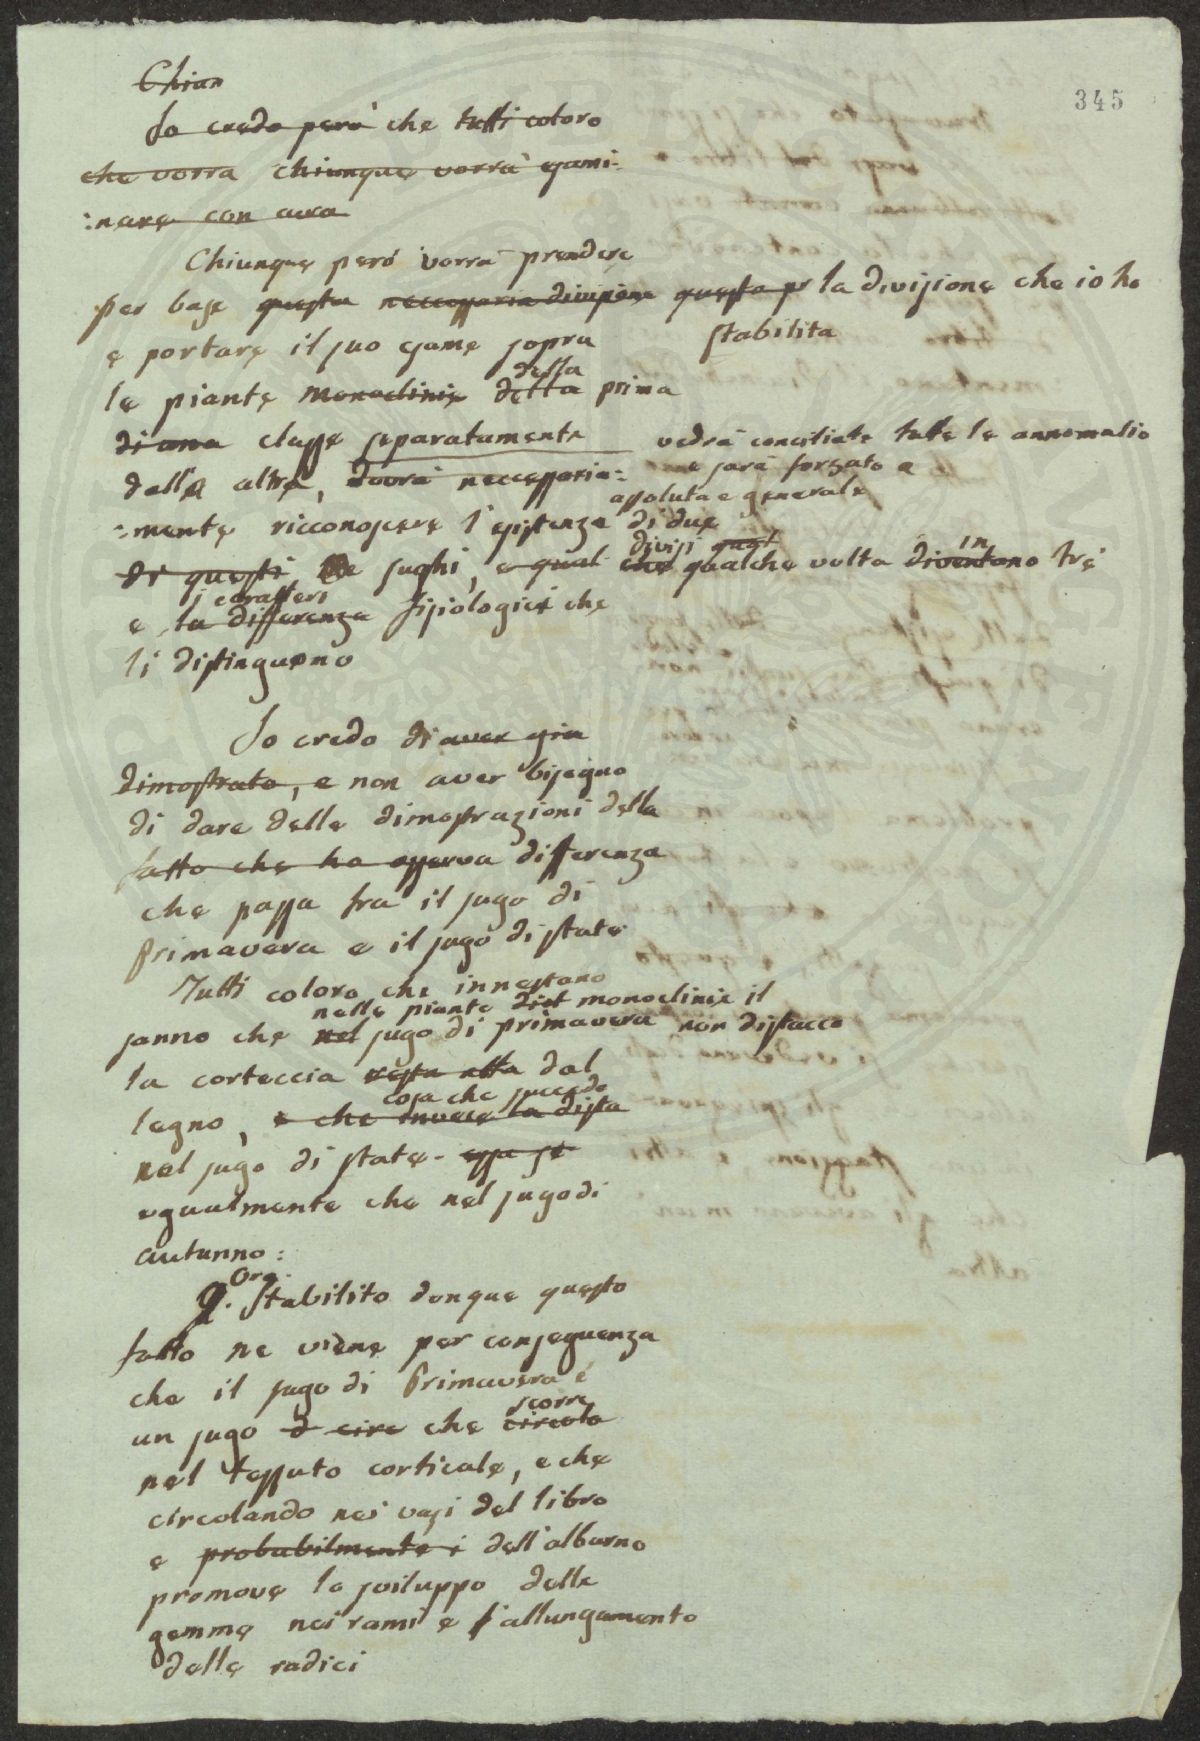 345
Chian
Io credo però che tutti coloro
che vorra chiunque vorrà esami-
:nare con cura
Chiunque però vorrà prendere
per base questa neccessaria divisione questa pr la divisione che io ho
stabilita
e portare il suo esame sopra
della
le piante monoclinie detta prima
di una classe separatamente vedrà conciliate tute le annomalie
dalle altre, dovrà neccessaria-: e sarà forzato a
assoluta e generale
:-mente ricconoscere l'esistenza di due
divisi quat in
di questi sughi, e qual che qualche volta diventano tre
i caratteri
e la differenza fisiologici che
li distinguono
Io credo di aver gia
dimostrato, e non aver bisogno
di dare delle dimostrazioni della
fatto che ho osserva differenza
che passa fra il sugo di
primavera e il sugo di state
Tutti coloro che innestano
nelle piante monoclinie il
sanno che nel sugo di primavera non distacca
la corteccia resta atta dal
cosa che succede
legno, e che invece la dista
nel sugo di state - essa se
ugualmente che nel sugo di
autunno:
Ora
Stabilito donque questo
fatto ne viene per conseguenza
che il sugo di Primavera è
scorre
un sugo d circ che circola
nel tessuto corticale, e che
circolando nei vasi del libro
e probabilmente i dell'alburno
promove lo sviluppo delle
gemme nei rami e l'allungamento
delle radici